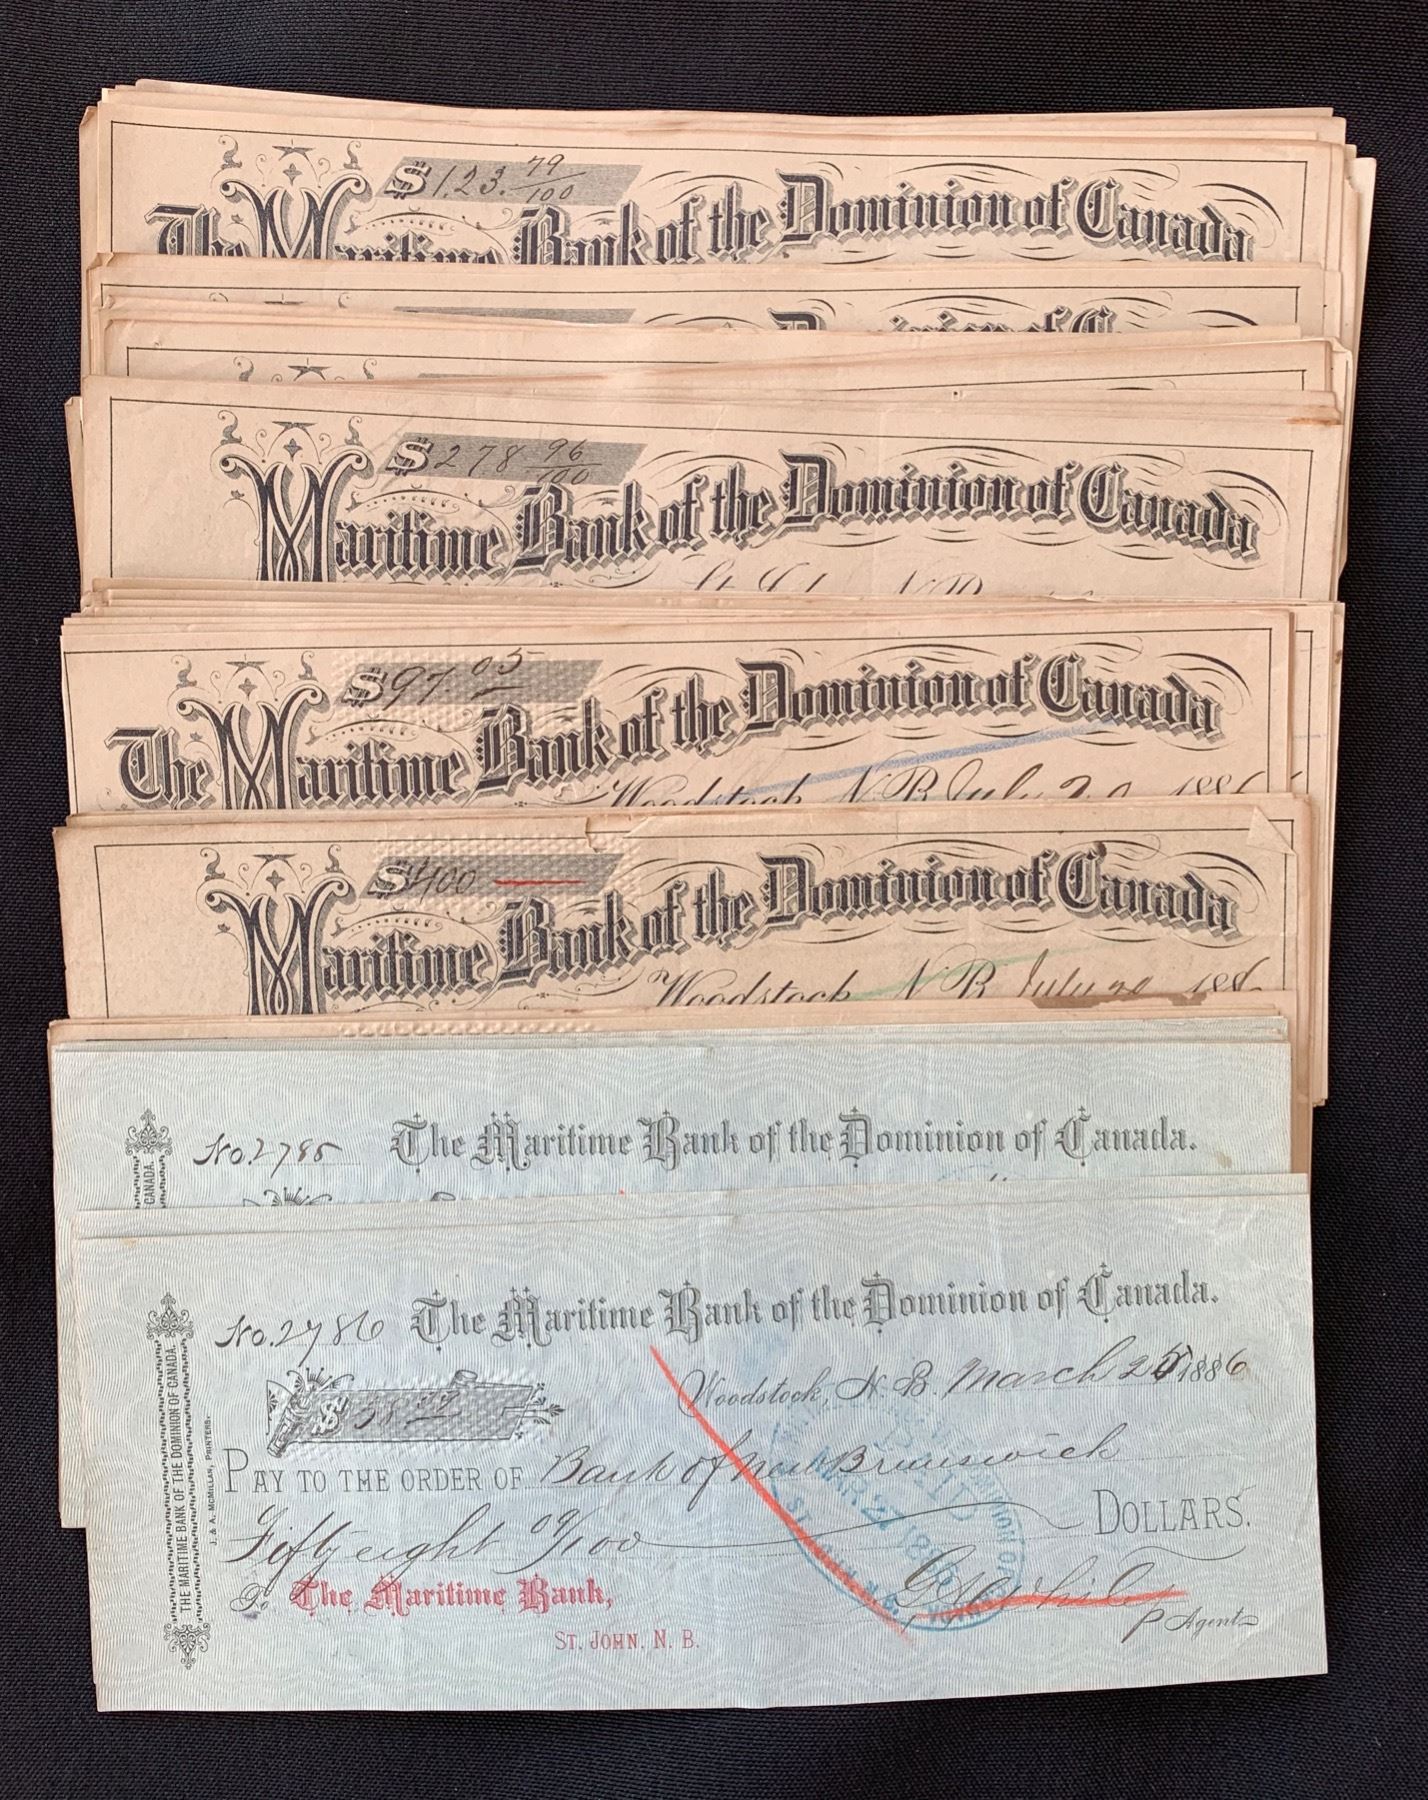 $123. 79/100
The Maritime Bank of the Dominion of Canada
$278 96/100
Maritime Bank of the Dominion of Canada
$97.05
The Maritime Bank of the Dominion of Canada
Woodstock N.B. July 20 1886
$400
Maritime Bank of the Dominion of Canada
Woodstock N B July 20 188
CANADA.
No. 2785 The Maritime Bank of the Dominion of Canada.
THE MARITIME BANK OF THE DOMINION OF CANADA.
J. & A. McMILLAN, PRINTERS.
No. 2786 The Maritime Bank of the Dominion of Canada.
Woodstock, N. B. March 25 1886
$58 09
PAY TO THE ORDER OF Bank of New Brunswick
Fifty eight 09/100 DOLLARS.
To The Maritime Bank,
ST. JOHN, N. B.
P Agent